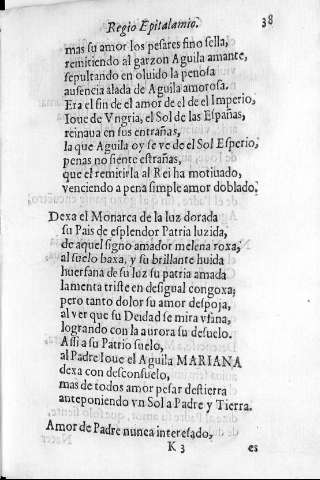 Regio Epitalamio. 38
mas su amor los pesares fino sella,
remitiendo al garzon Aguila amante,
sepultando en oluido la penosa
ausencia alada de Aguila amorosa.
Era el fin de el amor de el de el Imperio,
Ioue de Vngria, el Sol de las Españas,
reinaua en sus entrañas,
la que Aguila oy se ve de el Sol Esperio,
penas no siente estrañas,
que el remitirla al Rei ha motiuado,
venciendo a pena simple amor doblado.
Dexa el Monarca de la luz dorada
su Pais de esplendor Patria luzida,
de aquel signo amador melena roxa,
al suelo baxa, y su brillante huida
huerfana de su luz su patria amada
lamenta triste en desigual congoxa;
pero tanto dolor su amor despoja,
al ver que su Deidad se mira vfana,
logrando con la aurora su desuelo.
Assi a su Patrio suelo,
al Padre Ioue el Aguila MARIANA
dexa con desconsuelo,
mas de todos amor pesar destierra
anteponiendo vn Sol a Padre y Tierra.
Amor de Padre nunca interesado,
K 3 es